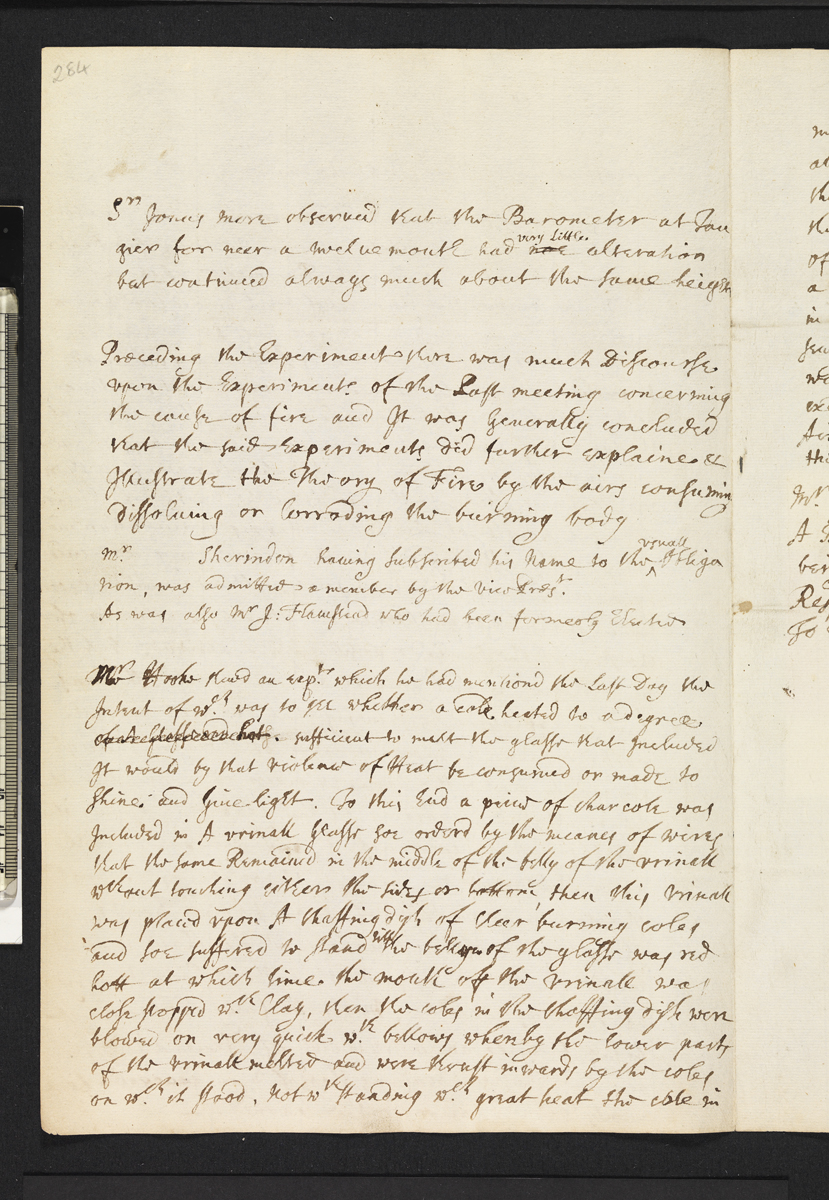 284
Sr Jonas more observed that the Barometer at Tan
gier for neer a twelvemonth had very Little alteration
but continued always much about the same height
Preceding the Experiment there was much Discourse
vpon the Experiments of the Last meeting concerning
the cause of fire and It was Generally concluded
that the said Experiments Did further explaine &
Illustrate the Theory of Fire by the airs consuming
Dissoluing or Corroding the burning body
mr Sheridon having subscribed his Name to the vsuall Obliga
tion, was admitted a member by the vice Prest.
As was also Mr J: Flamstead who had been formerly Elected
Mr Hooke shewd an expt. which he had mentiond the Last Day the
Intent of wch was to see whether a Cole heated to a degree
sufficient to melt the glasse that Included
It would by that violence of Heat be consumed or made to
shine and Giue light. To this End a piece of charcole was
Included in A vrinall Glasse soe orderd by the meanes of wires
that the same Remained in the middle of the belly of the vrinall
wthout touching either the sides or bottom, then this vrinall
was placed vpon A Chaffing dish of Clear burning coles
and soe suffered to stand till the belly of the glasse was red
hott at which time the mouth of the vrinall was
close stopped wth Clay, then the coles in the Chaffing dish were
blowed on very quick wth bellows whereby the lower parts
of the vrinall melted and were thrust inwards by the coles
on wch it stood. Notwthstanding wch great heat the cole in
Mr
A
ber